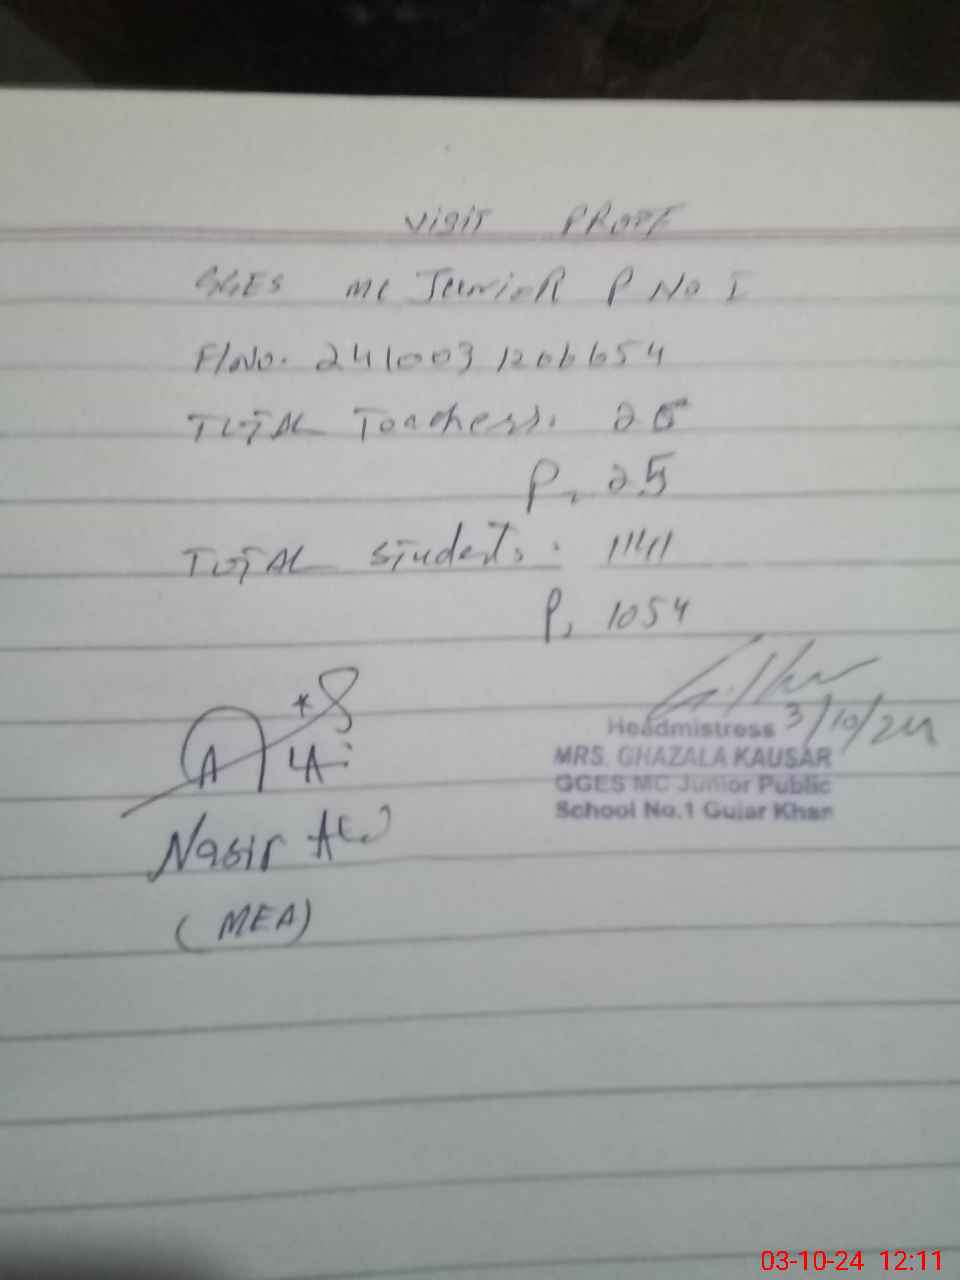 Visit PROFE
GGES MC JUNIOR P NO I
F/No. 241003 1206654
TOTAL Teachers. 25
P, 25
TOTAL Students: 1141
P, 1054
Headmistress 3/10/24
MRS. GHAZALA KAUSAR
GGES MC Junior Public
School No.1 Gujar Khan
Nasir Ali
(MEA)
03-10-24 12:11